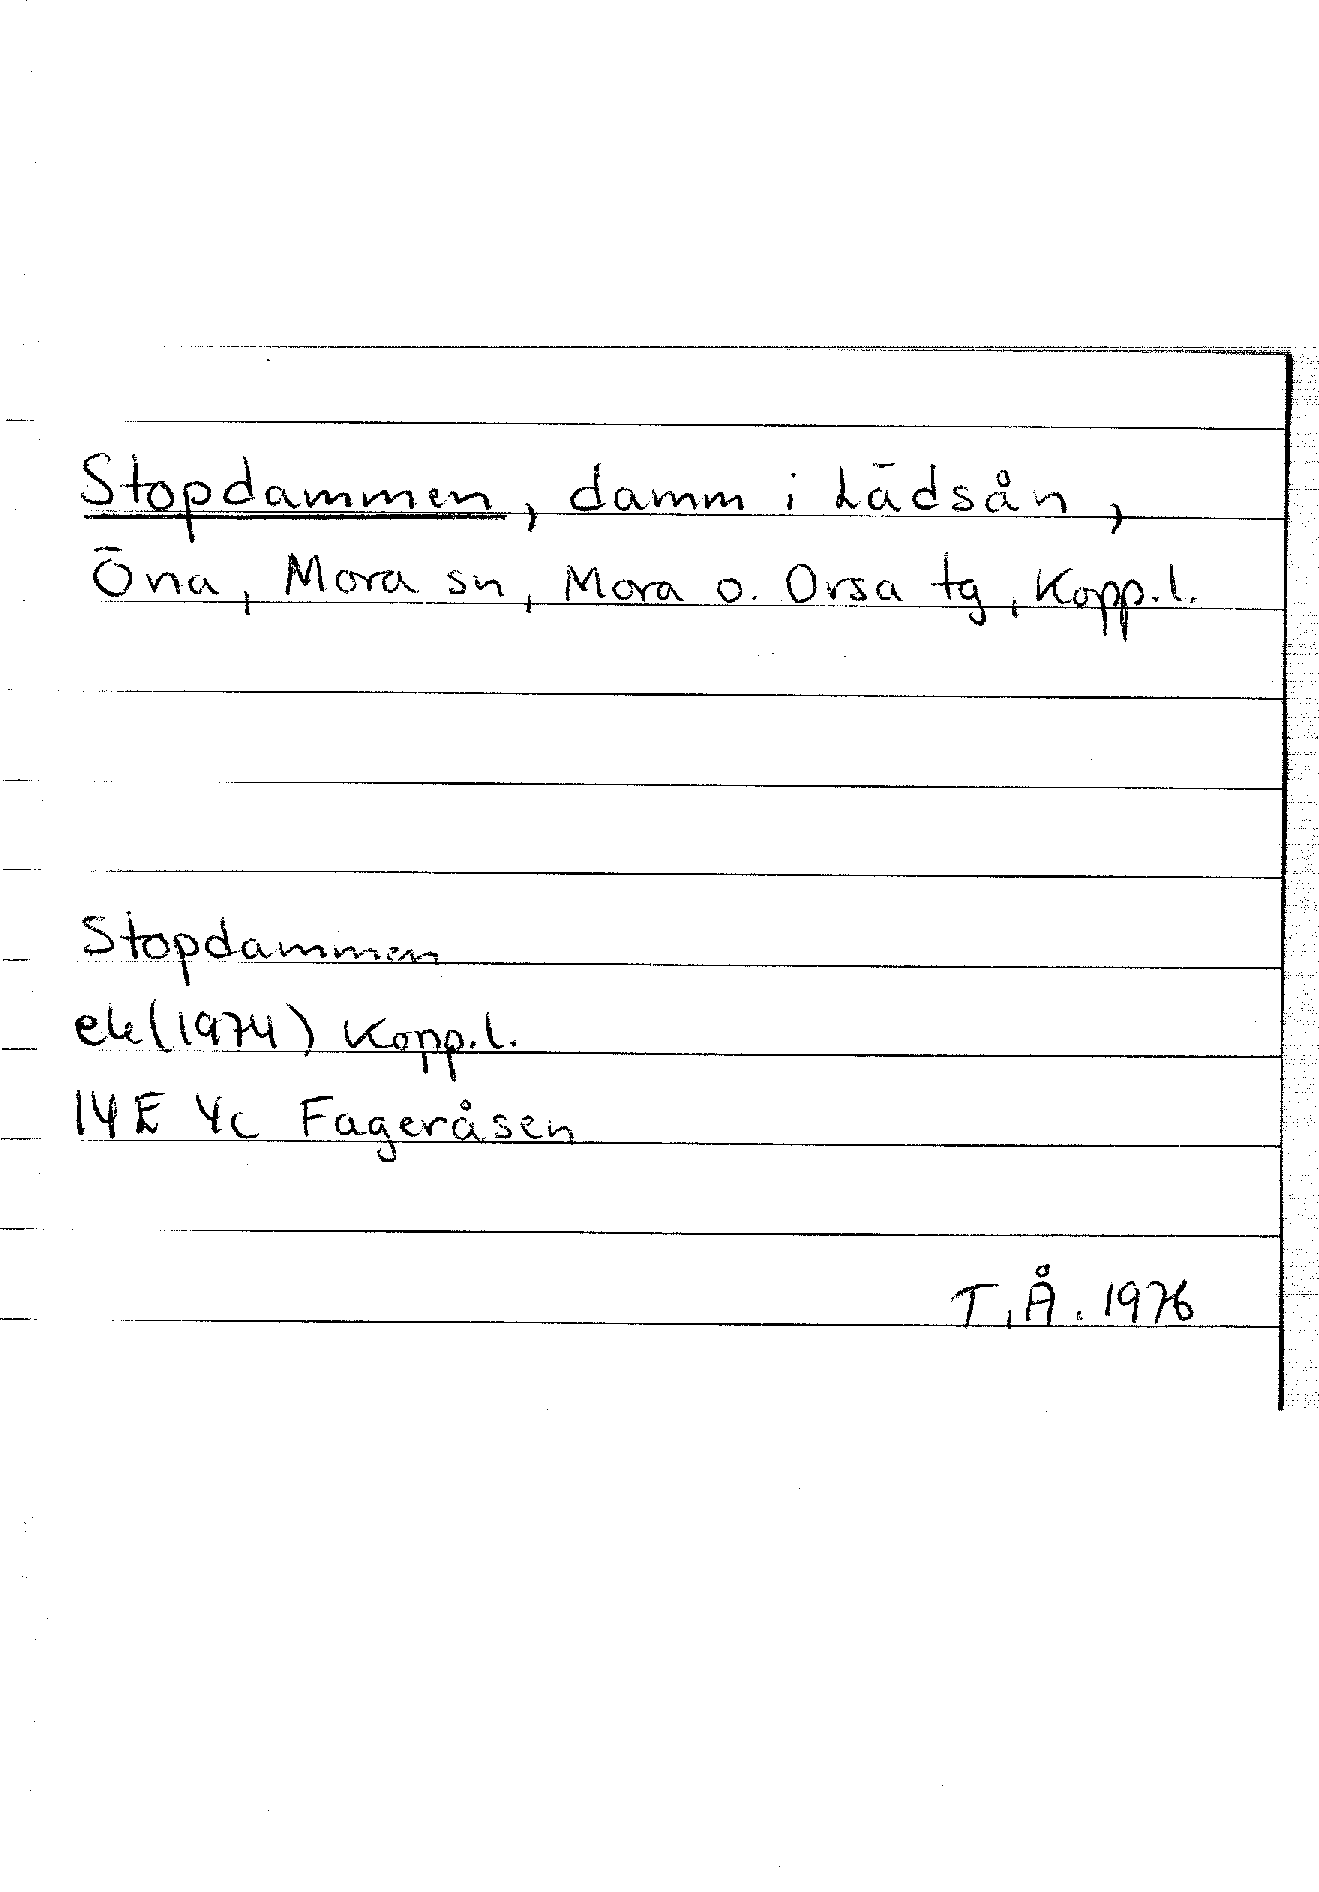 Stopdammen, damm i Lädsån,
Öna, Mora sn, Mora o. Orsa tg, Kopp.l.
Stopdammen
ek (1974) Kopp.l.
14E 4c Fageråsen
T.Å. 1976